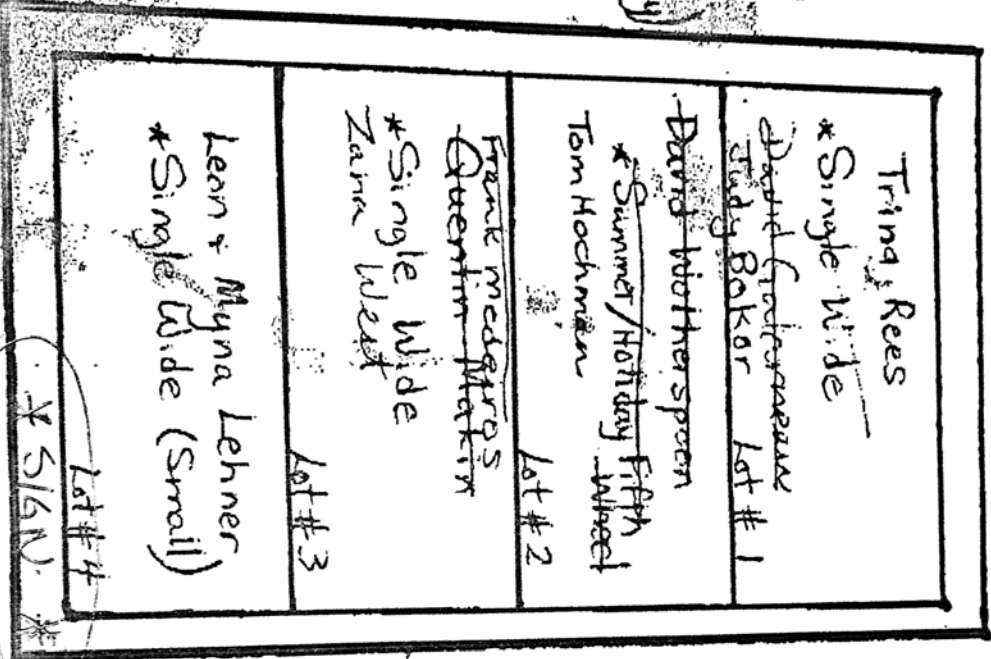 Trina Rees
*Single Wide
David
Judy Baker Lot # 1
David Wotherspoon
*Summer/Holiday Fifth
Wheel
Tom Hochman
Lot # 2
Frank medeiros
Quentin Makin
*Single Wide
Zana West
Lot # 3
Leon + Myna Lehner
*Single Wide (Small)
Lot # 4
* SIGN. *